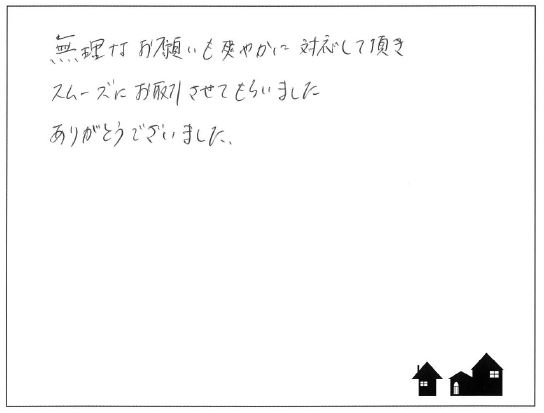 無理なお願いも爽やかに対応して頂き
スムーズにお取引させてもらいました
ありがとうございました、